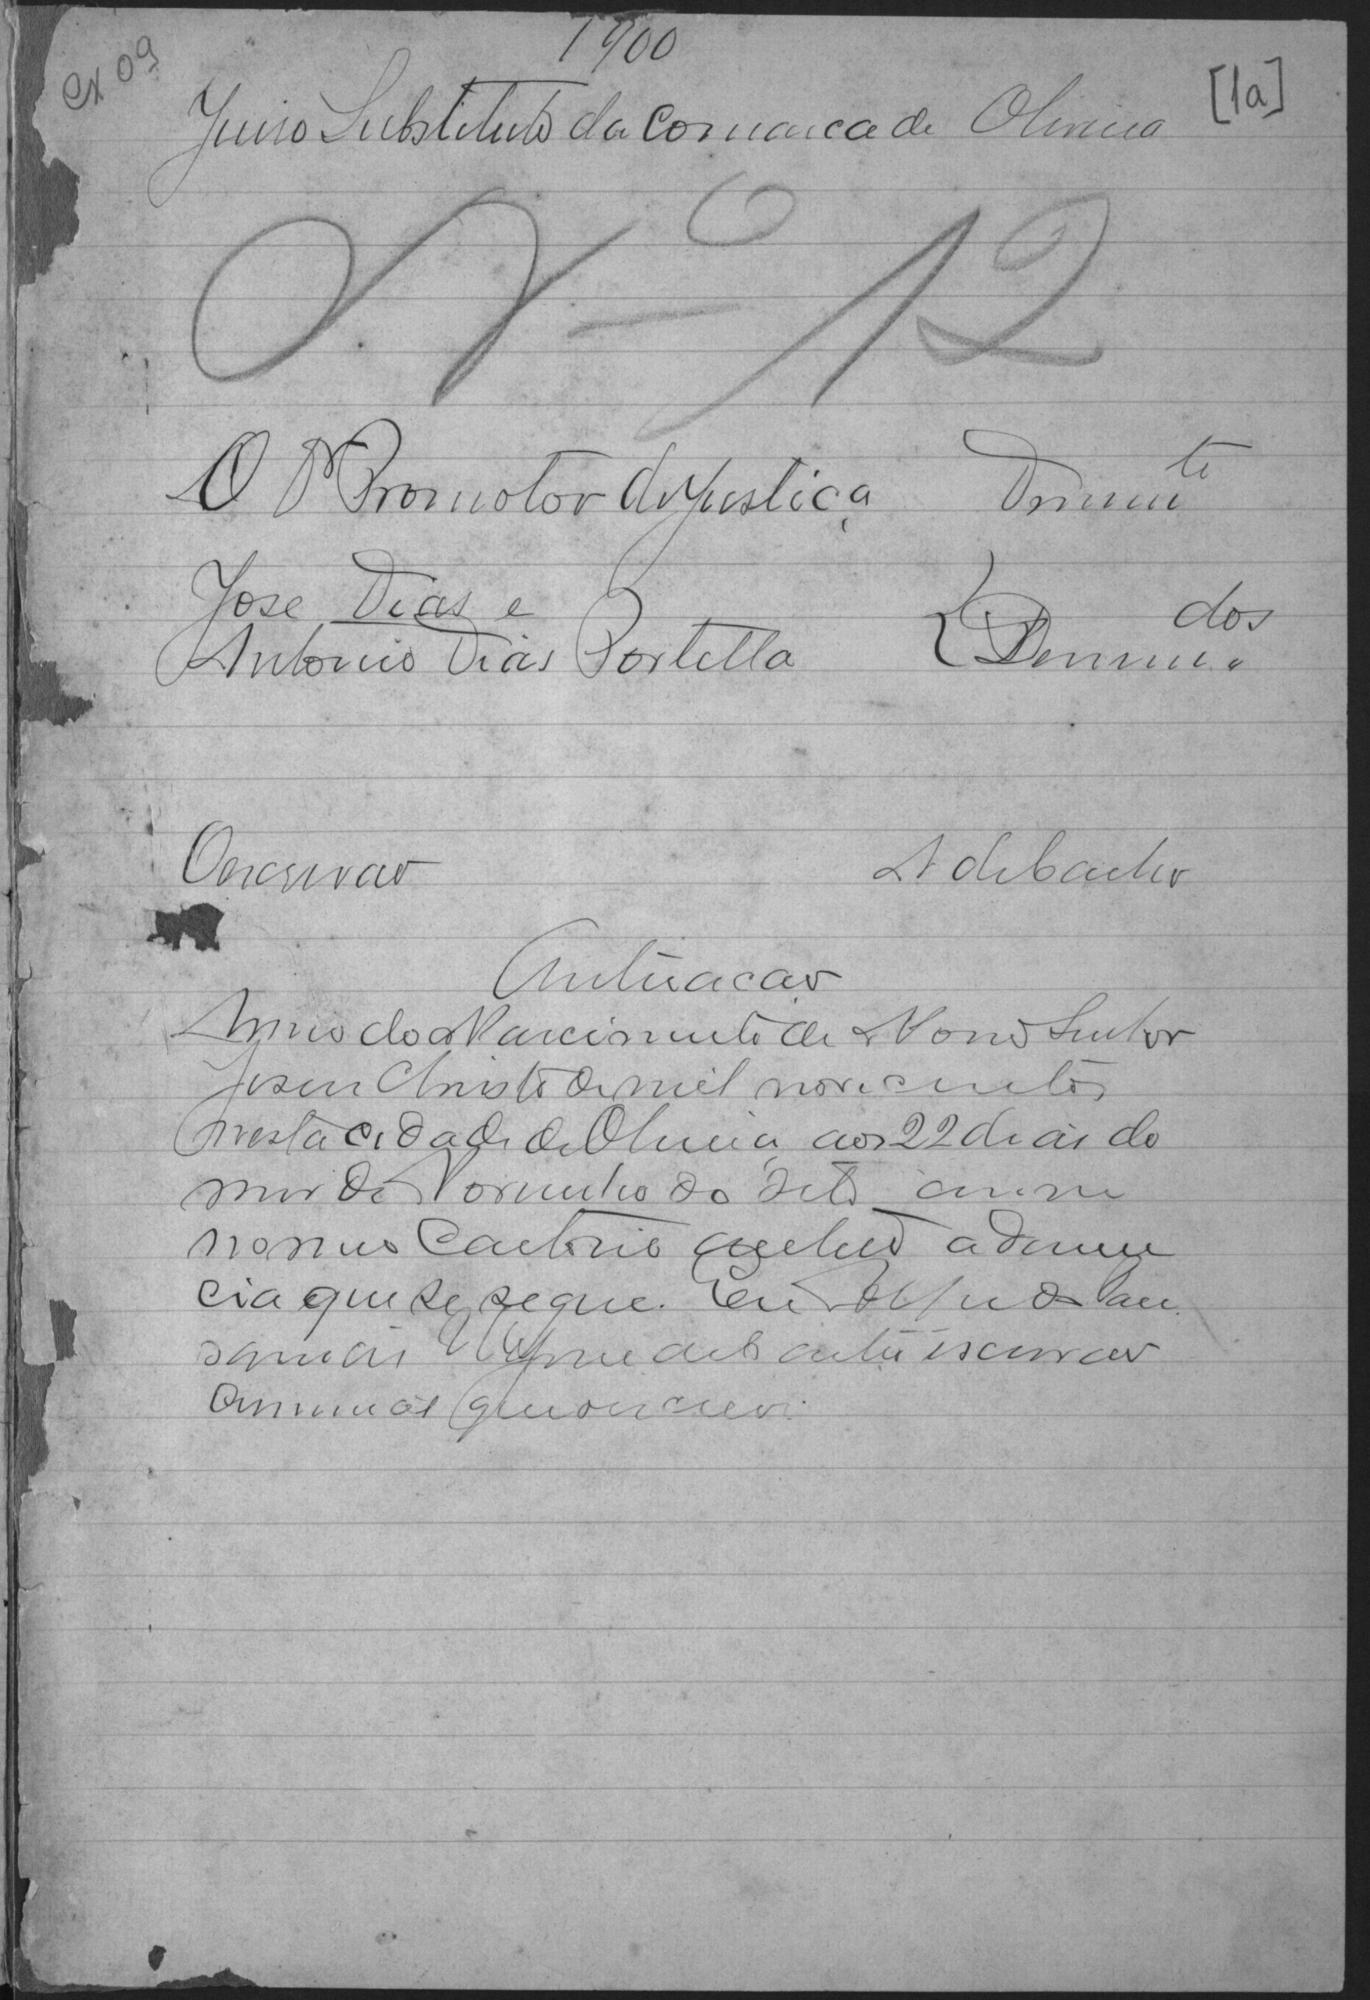 cx 09
1900
[1a]
Juiso Substituto da Comarca de Oliveira
Nº 12
O Dr Promotor de Justiça Denunte
Jose Dias e
Antonio Dias Portella Denun.dos
Oescrivao
Autuacao
Anno do Nascimento de Nosso Senhor
Jesus Christo de mil novecentos
nesta cidade de Oliveira aos 22 dias do
mes de Novembro do dito anno
no meu Cartorio autuo a denun
cia que se segue. Eu
escrivao
que o escrevi.